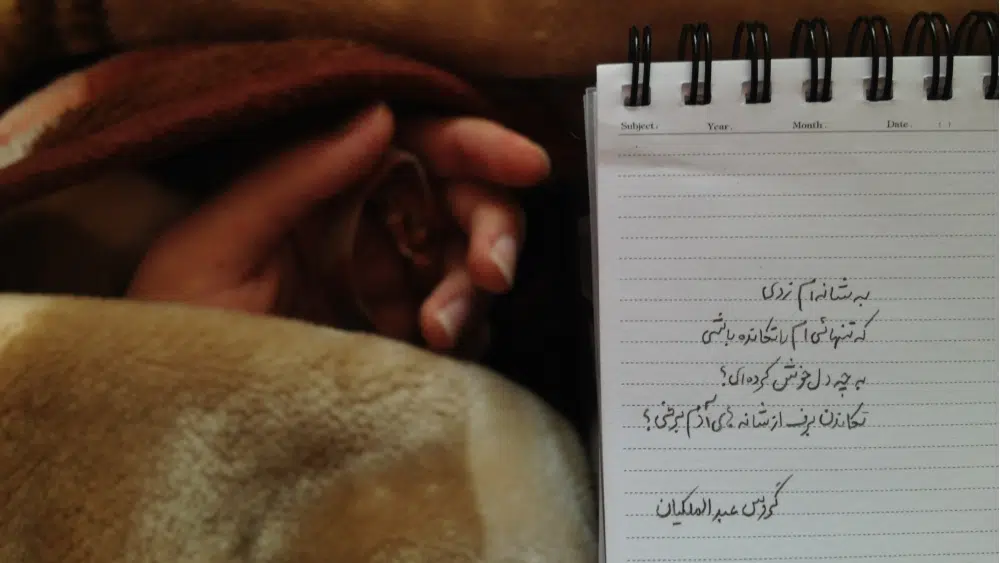 Subject. Year. Month. Date. : :
به شانه ام زدی
که تنهائی ام را تکانده باشی
به چه دل خوش کرده ای؟
تکاندن برف از شانه های آدم برفی؟
گروس عبدالملکیان